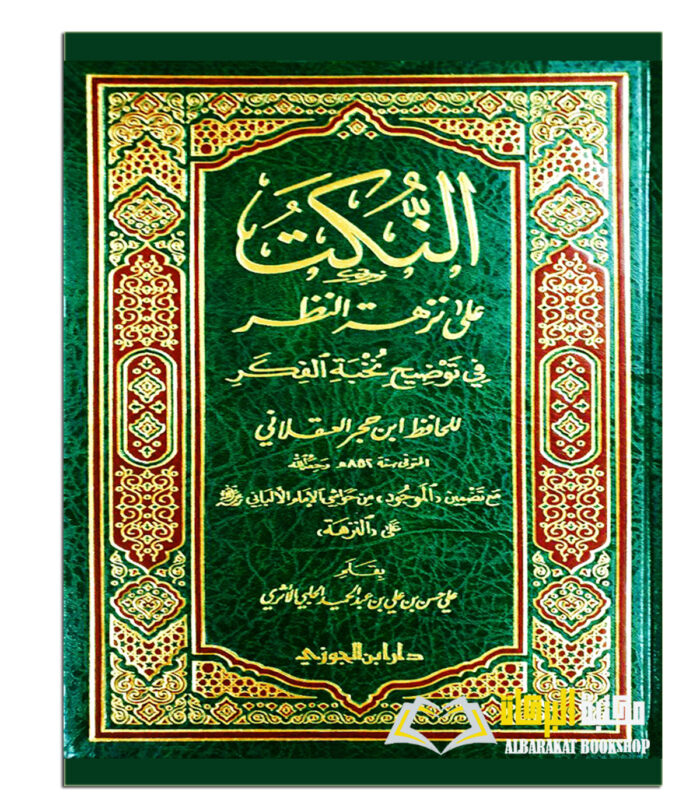 النُّكَتُ
على نزهة النظر
في تَوْضِيح نُخْبَةِ الفِكَر
للحافظ ابن حجر العسقلاني
المتوفى سنة ٨٥٢هـ رحمه الله
مع تضمين «الموجود» من حواشي الإمام الألباني
على «النزهة»
بقلم
علي حسن بن علي بن عبد الحميد الحلبي الأثري
دار ابن الجوزي
مكتبة البركات
ALBARAKAT BOOKSHOP